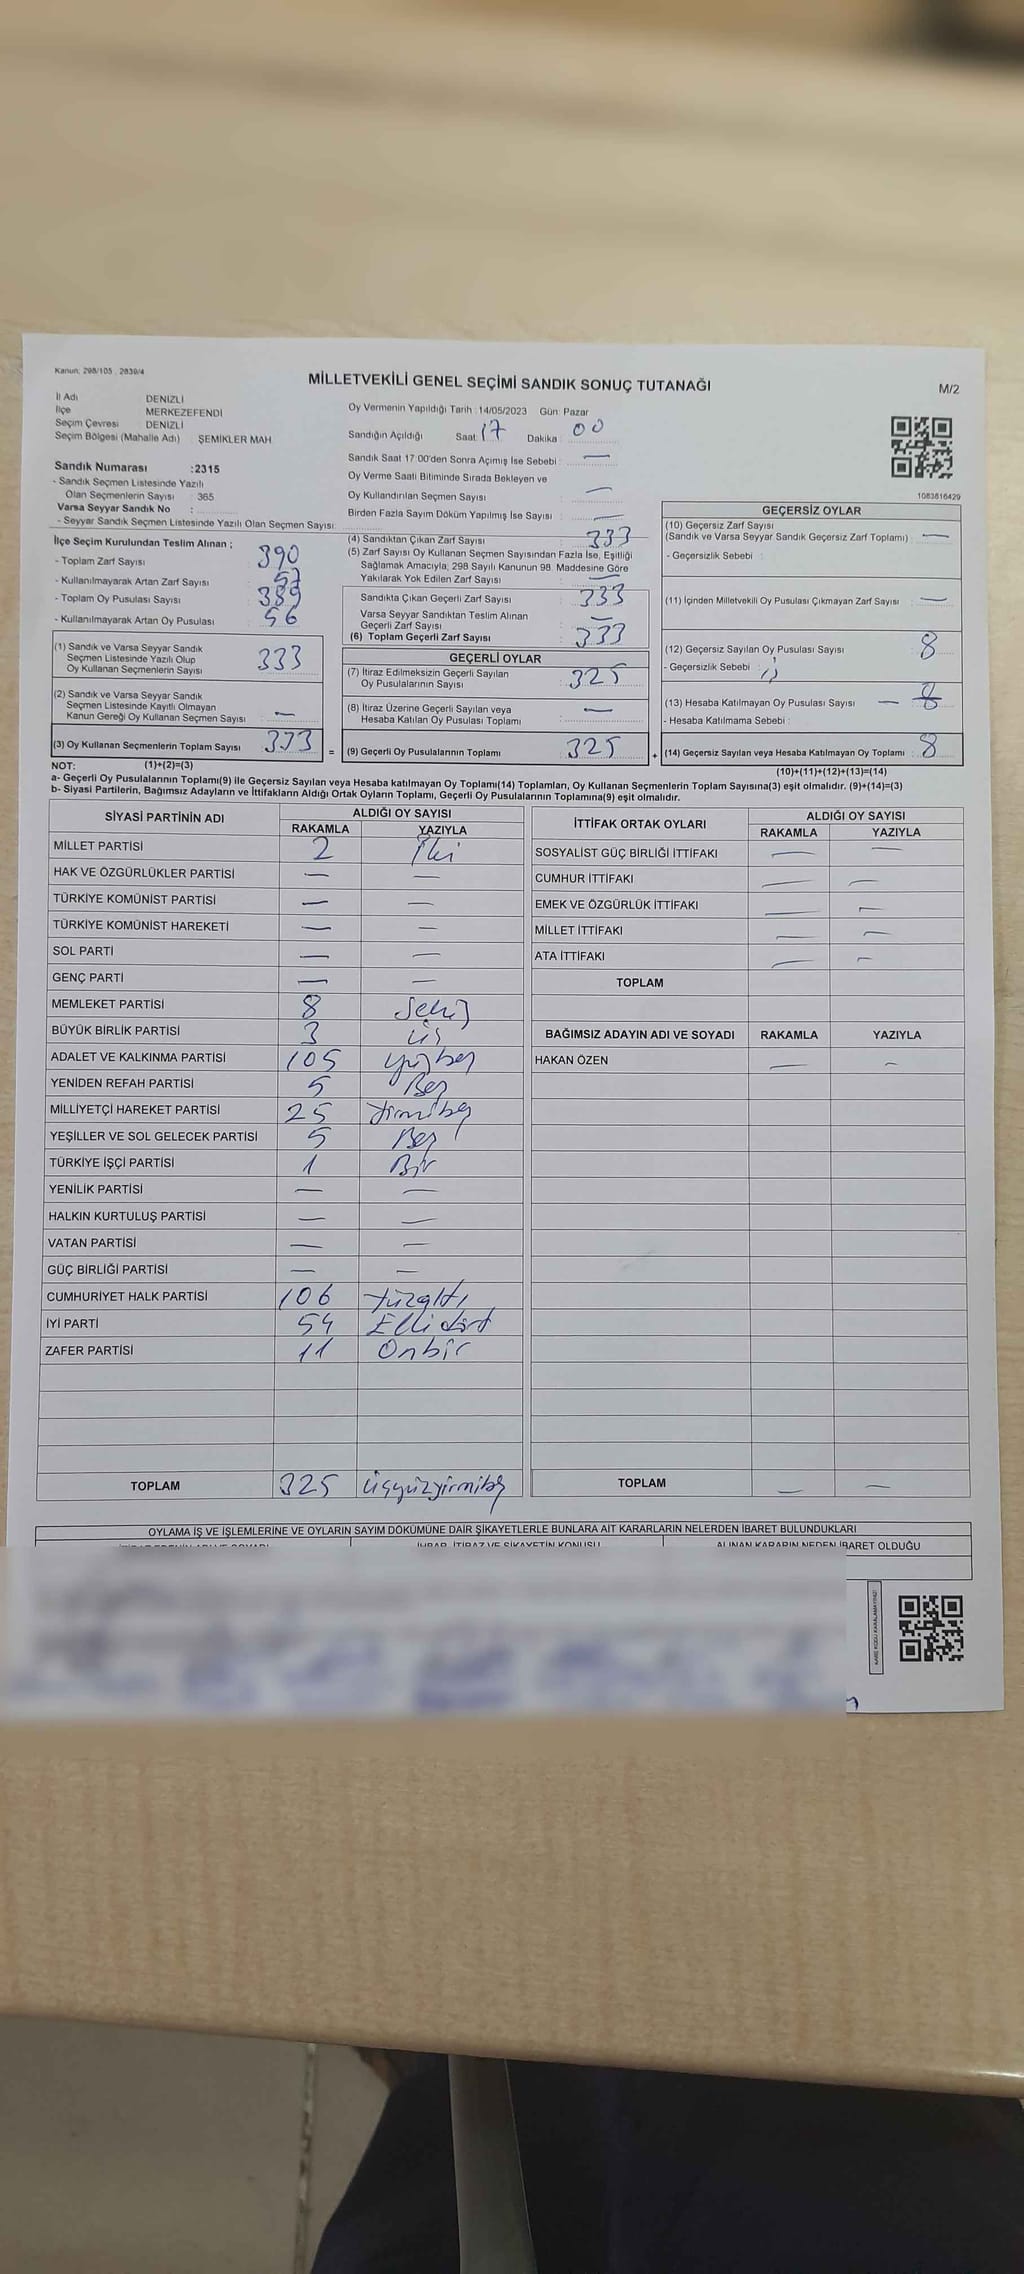 Kanun: 298/105 , 2839/4
MİLLETVEKİLİ GENEL SEÇİMİ SANDIK SONUÇ TUTANAĞI
M/2
İl Adı DENİZLİ
İlçe MERKEZEFENDİ
Seçim Çevresi DENİZLİ
Seçim Bölgesi (Mahalle Adı) : ŞEMİKLER MAH
Sandık Numarası :2315
- Sandık Seçmen Listesinde Yazılı
Olan Seçmenlerin Sayısı : 365
Varsa Seyyar Sandık No :
- Seyyar Sandık Seçmen Listesinde Yazılı Olan Seçmen Sayısı:
Oy Vermenin Yapıldığı Tarih :14/05/2023 Gün: Pazar
Sandığın Açıldığı Saat: 17 Dakika : 00
Sandık Saat 17:00'den Sonra Açımış İse Sebebi : —
Oy Verme Saati Bitiminde Sırada Bekleyen ve
Oy Kullandırılan Seçmen Sayısı : —
Birden Fazla Sayım Döküm Yapılmış İse Sayısı : —
1083816429
İlçe Seçim Kurulundan Teslim Alınan ;
- Toplam Zarf Sayısı : 390
- Kullanılmayarak Artan Zarf Sayısı : 57
- Toplam Oy Pusulası Sayısı : 389
- Kullanılmayarak Artan Oy Pusulası : 56
(1) Sandık ve Varsa Seyyar Sandık
Seçmen Listesinde Yazılı Olup
Oy Kullanan Seçmenlerin Sayısı : 333
(2) Sandık ve Varsa Seyyar Sandık
Seçmen Listesinde Kayıtlı Olmayan
Kanun Gereği Oy Kullanan Seçmen Sayısı : —
(3) Oy Kullanan Seçmenlerin Toplam Sayısı : 333
(4) Sandıktan Çıkan Zarf Sayısı : 333
(5) Zarf Sayısı Oy Kullanan Seçmen Sayısından Fazla İse, Eşitliği
Sağlamak Amacıyla, 298 Sayılı Kanunun 98. Maddesine Göre
Yakılarak Yok Edilen Zarf Sayısı : —
Sandıkta Çıkan Geçerli Zarf Sayısı : 333
Varsa Seyyar Sandıktan Teslim Alınan
Geçerli Zarf Sayısı : —
(6) Toplam Geçerli Zarf Sayısı : 333
GEÇERLİ OYLAR
(7) İtiraz Edilmeksizin Geçerli Sayılan
Oy Pusulalarının Sayısı : 325
(8) İtiraz Üzerine Geçerli Sayılan veya
Hesaba Katılan Oy Pusulası Toplamı : —
= (9) Geçerli Oy Pusulalarının Toplamı : 325 +
GEÇERSİZ OYLAR
(10) Geçersiz Zarf Sayısı
(Sandık ve Varsa Seyyar Sandık Geçersiz Zarf Toplamı) : —
- Geçersizlik Sebebi :
(11) İçinden Milletvekili Oy Pusulası Çıkmayan Zarf Sayısı : —
(12) Geçersiz Sayılan Oy Pusulası Sayısı : 8
- Geçersizlik Sebebi :
(13) Hesaba Katılmayan Oy Pusulası Sayısı : — 8
- Hesaba Katılmama Sebebi :
(14) Geçersiz Sayılan veya Hesaba Katılmayan Oy Toplamı : 8
NOT: (1)+(2)=(3)
(10)+(11)+(12)+(13)=(14)
a- Geçerli Oy Pusulalarının Toplamı(9) ile Geçersiz Sayılan veya Hesaba katılmayan Oy Toplamı(14) Toplamları, Oy Kullanan Seçmenlerin Toplam Sayısına(3) eşit olmalıdır. (9)+(14)=(3)
b- Siyasi Partilerin, Bağımsız Adayların ve İttifakların Aldığı Ortak Oyların Toplamı, Geçerli Oy Pusulalarının Toplamına(9) eşit olmalıdır.
SİYASİ PARTİNİN ADI ALDIĞI OY SAYISI
RAKAMLA YAZIYLA
MİLLET PARTİSİ 2 İki
HAK VE ÖZGÜRLÜKLER PARTİSİ — —
TÜRKİYE KOMÜNİST PARTİSİ — —
TÜRKİYE KOMÜNİST HAREKETİ — —
SOL PARTİ — —
GENÇ PARTİ — —
MEMLEKET PARTİSİ 8 Sekiz
BÜYÜK BİRLİK PARTİSİ 3 üç
ADALET VE KALKINMA PARTİSİ 105 yüzbeş
YENİDEN REFAH PARTİSİ 5 Beş
MİLLİYETÇİ HAREKET PARTİSİ 25 Yirmibeş
YEŞİLLER VE SOL GELECEK PARTİSİ 5 Beş
TÜRKİYE İŞÇİ PARTİSİ 1 Bir
YENİLİK PARTİSİ — —
HALKIN KURTULUŞ PARTİSİ — —
VATAN PARTİSİ — —
GÜÇ BİRLİĞİ PARTİSİ — —
CUMHURİYET HALK PARTİSİ 106 Yüzaltı
İYİ PARTİ 54 Ellidört
ZAFER PARTİSİ 11 Onbir
TOPLAM 325 Üçyüzyirmibeş
İTTİFAK ORTAK OYLARI ALDIĞI OY SAYISI
RAKAMLA YAZIYLA
SOSYALİST GÜÇ BİRLİĞİ İTTİFAKI — —
CUMHUR İTTİFAKI — —
EMEK VE ÖZGÜRLÜK İTTİFAKI — —
MİLLET İTTİFAKI — —
ATA İTTİFAKI — —
TOPLAM
BAĞIMSIZ ADAYIN ADI VE SOYADI RAKAMLA YAZIYLA
HAKAN ÖZEN — —
TOPLAM — —
OYLAMA İŞ VE İŞLEMLERİNE VE OYLARIN SAYIM DÖKÜMÜNE DAİR ŞİKAYETLERLE BUNLARA AİT KARARLARIN NELERDEN İBARET BULUNDUKLARI
İHBAR, İTİRAZ VE ŞİKAYETİN KONUSU ALINAN KARARIN NEDEN İBARET OLDUĞU
KARE KODU KARALAMAYINIZ!